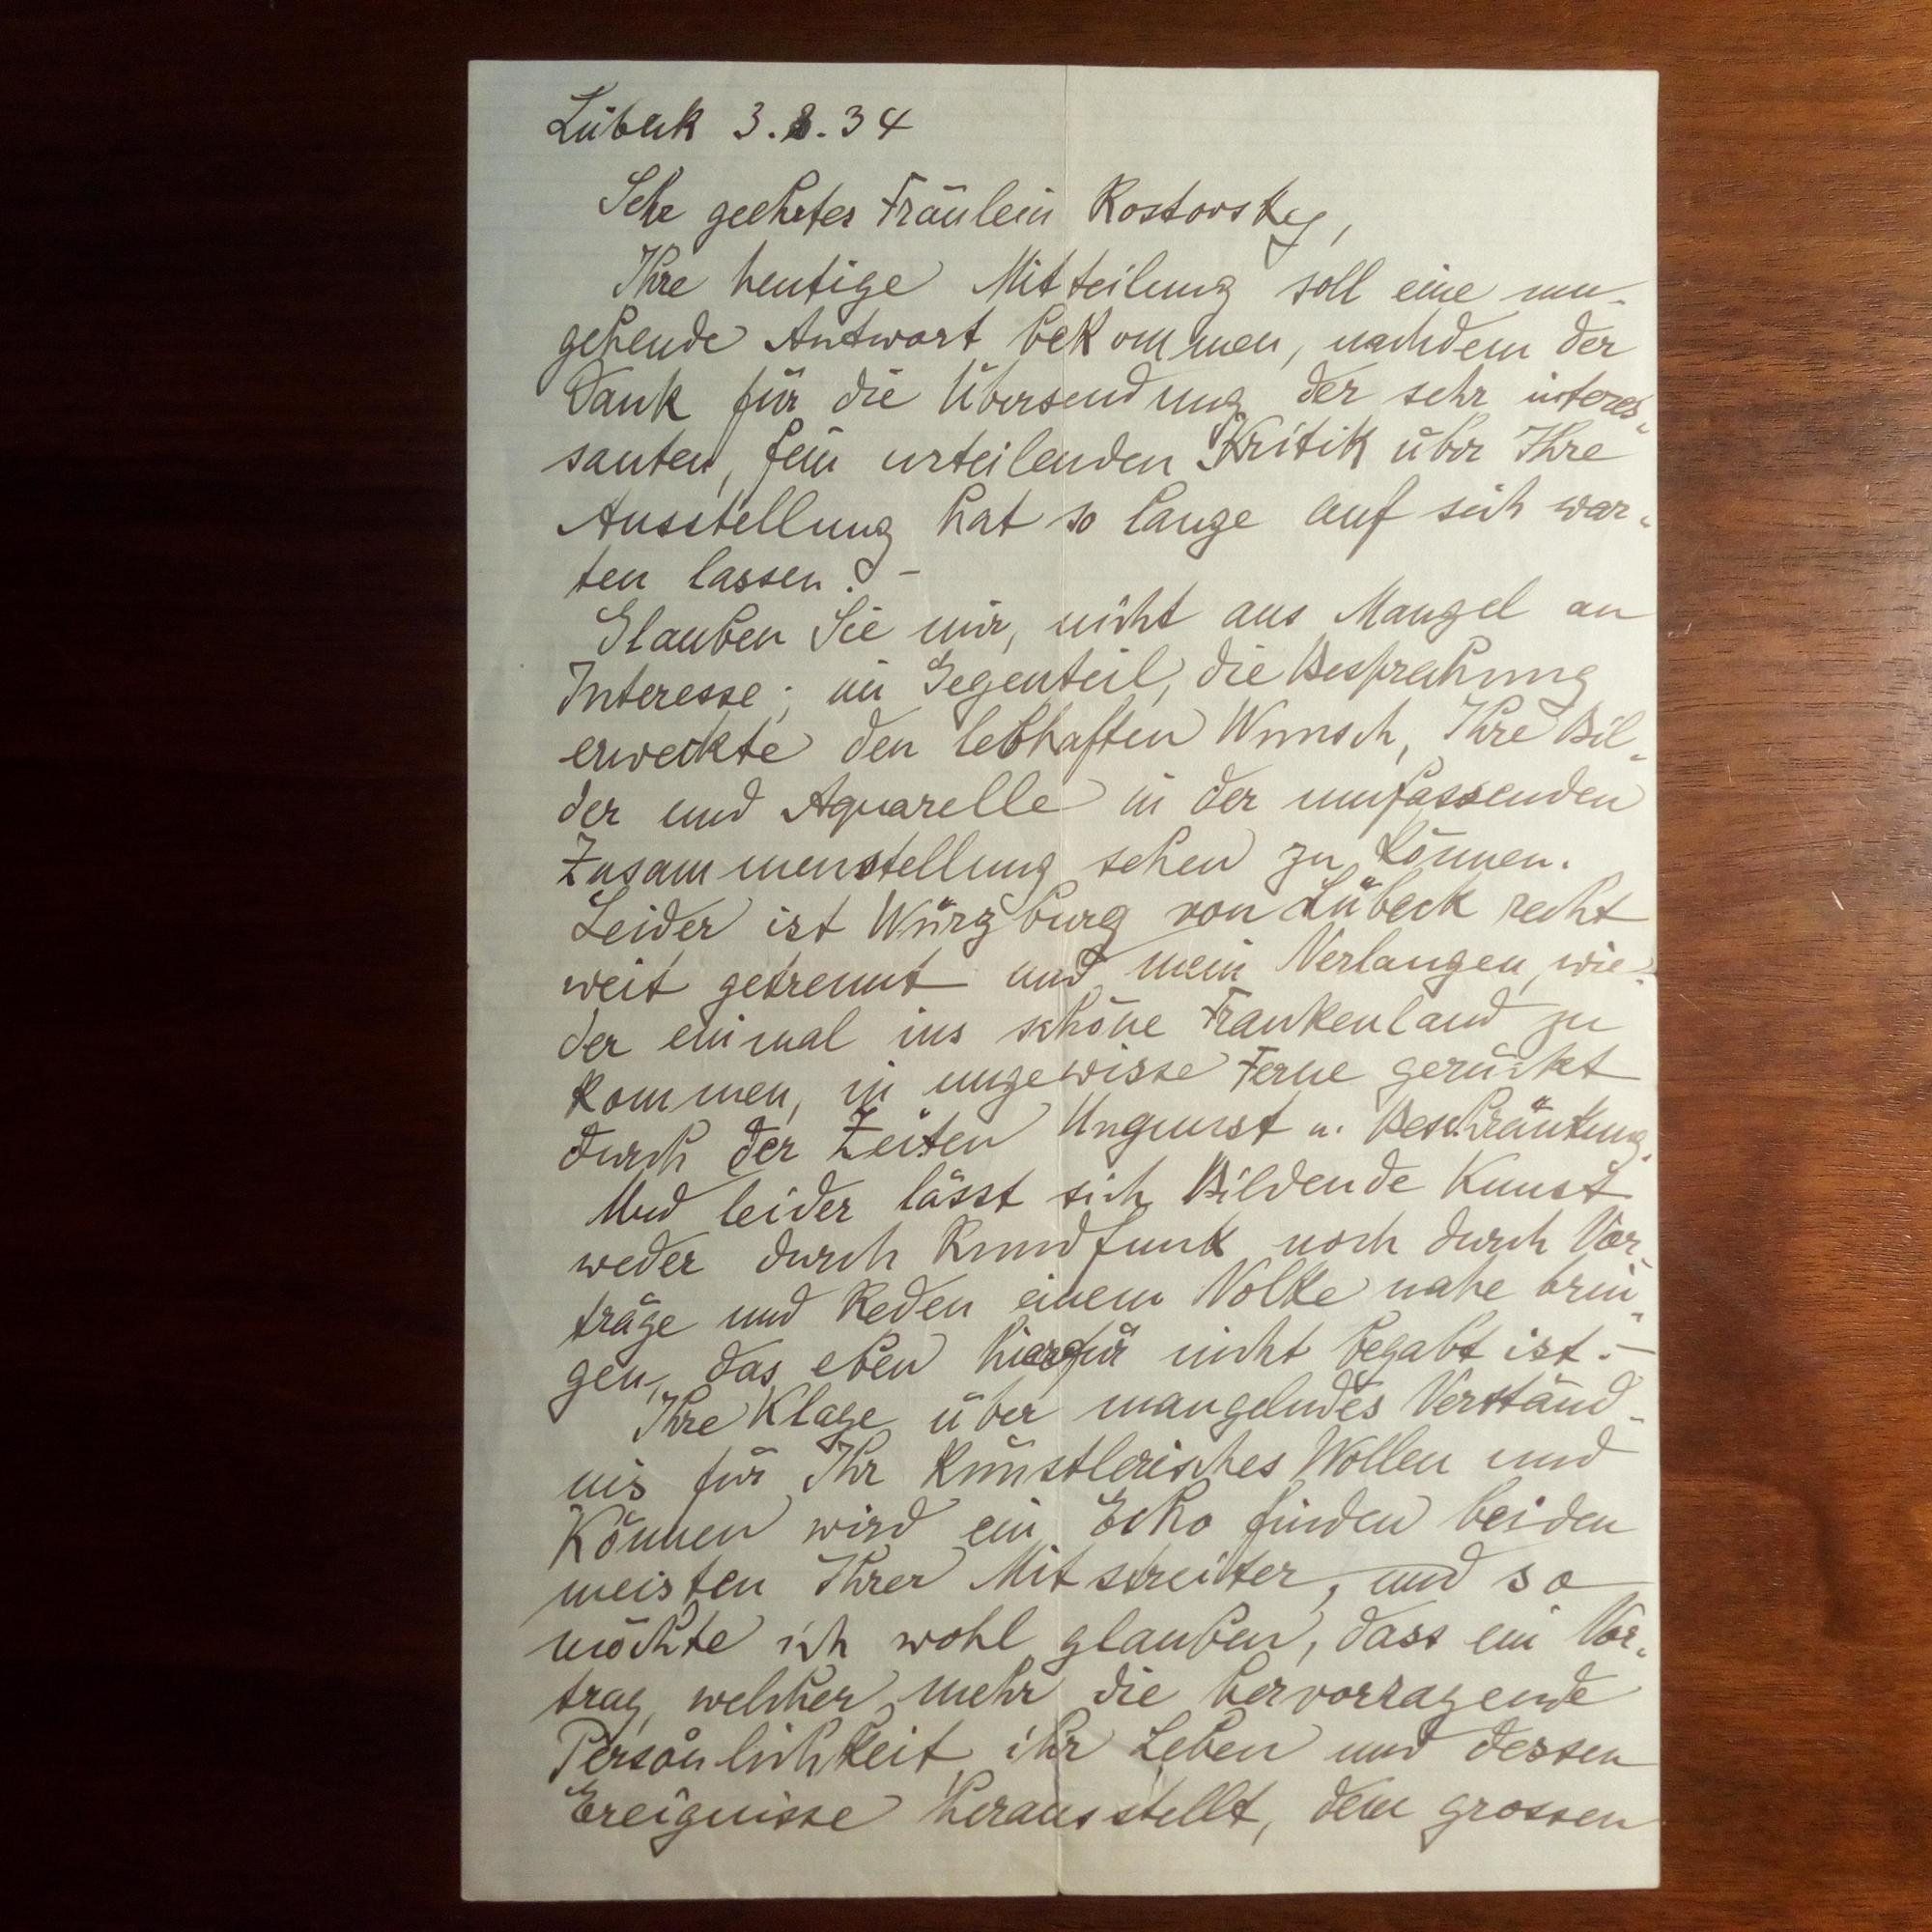 Lübeck 3.8.34
Sehr geehrtes Fräulein Rostovsky,
Ihre heutige Mitteilung soll eine um-
gehende Antwort bekommen, nachdem der
Dank für die Übersendung der sehr interes-
santen, fein urteilenden Kritik über Ihre
Ausstellung hat so lange auf sich war-
ten lassen. –
Glauben Sie mir, nicht aus Mangel an
Interesse; im Gegenteil, die Besprechung
erweckte den lebhaften Wunsch, Ihre Bil-
der und Aquarelle in der umfassenden
Zusammenstellung sehen zu können.
Leider ist Würzburg von Lübeck recht
weit getrennt und mein Verlangen, wie-
der einmal ins schöne Frankenland zu
kommen, in ungewisse Ferne gerückt
durch der Zeiten Ungunst u. Beschränkung.
Und leider lässt sich Bildende Kunst
weder durch Rundfunk noch durch Vor-
träge und Reden einem Volke nahe brin-
gen, das eben hierfür nicht begabt ist. –
Ihre Klage über mangelndes Verständ-
nis für Ihr künstlerisches Wollen und
Können wird ein Echo finden bei den
meisten Ihrer Mitstreiter, und so
möchte ich wohl glauben, dass ein Vor-
trag, welcher mehr die hervorragende
Persönlichkeit, ihr Leben und dessen
Ereignisse herausstellt, dem grossen